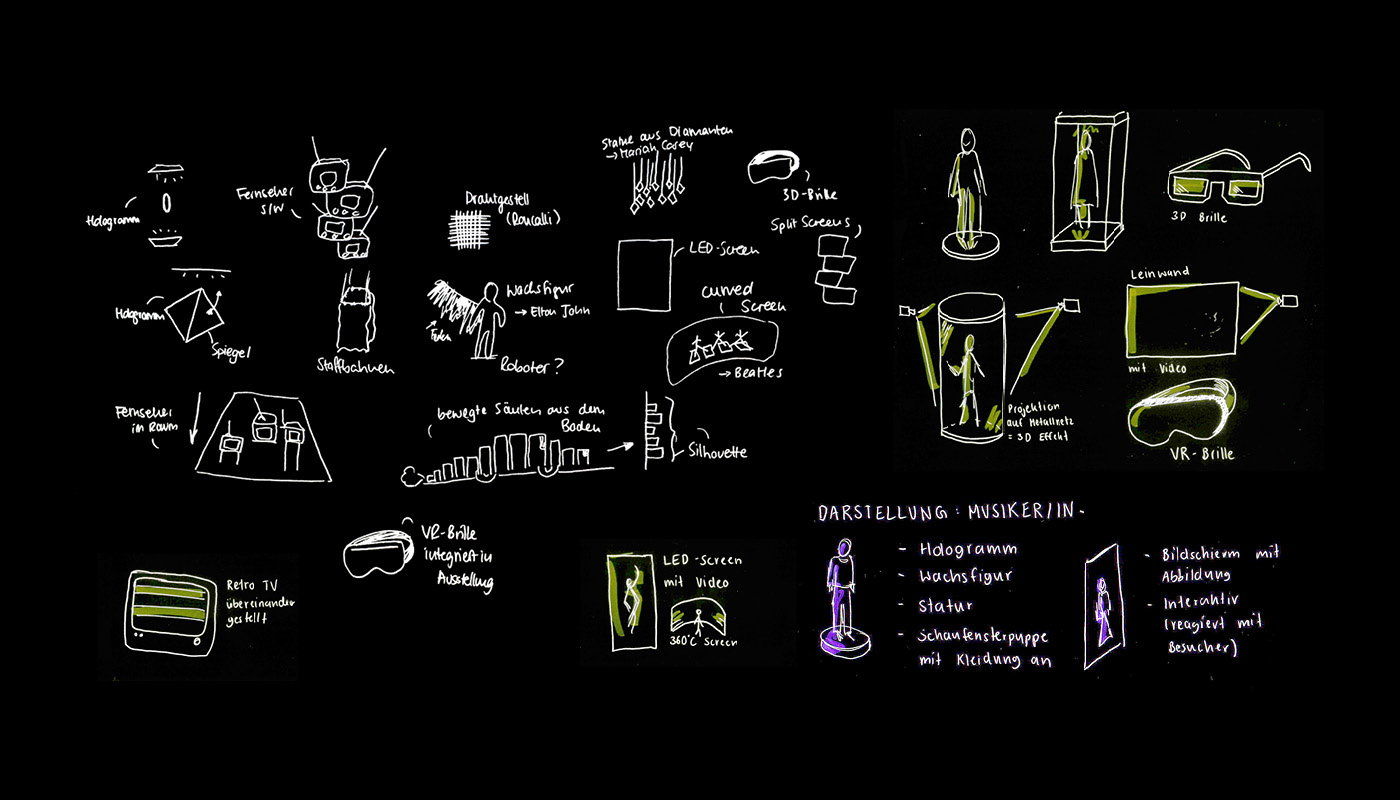 Hologramm
Fernseher
S/W
Drahtgestell
(Roncalli)
Statue aus Diamanten
→ Mariah Carey
3D-Brille
Split Screens
LED-Screen
Hologramm
Spiegel
Stoffbahnen
Wachsfigur
→ Elton John
Federn
Roboter?
curved
Screen
→ Beatles
Fernseher
im Raum
bewegte Säulen aus dem
Boden
Silhouette
VR-Brille
integriert in
Ausstellung
Retro TV
übereinander
gestellt
LED-Screen
mit Video
360°C Screen
3D Brille
Leinwand
mit Video
Projektion
auf Metallnetz
= 3D Effekt
VR-Brille
DARSTELLUNG: MUSIKER/IN-
- Hologramm
- Wachsfigur
- Statur
- Schaufensterpuppe
mit Kleidung an
- Bildschierm mit
Abbildung
- Interaktiv
(reagiert mit
Besucher)